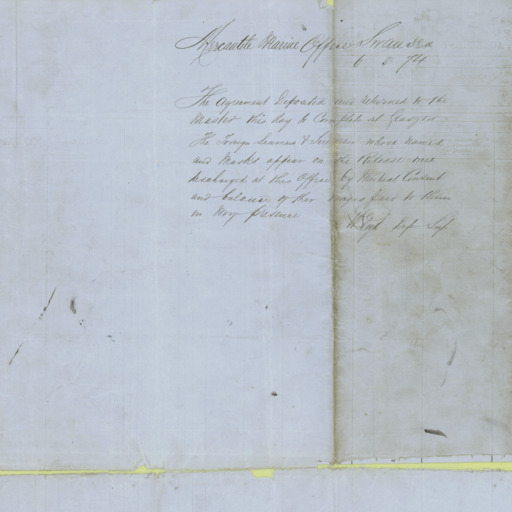 Mercantile Marine Office Swansea
6 5 74
The Agreement Deposited and returned to the
Master this day to Complete at Glasgow
The Foreign Seamen & whose names
and Marks appear on the Release were
discharged at this Office by Mutual Consent
and balance of their wages paid to them
in my presence
Dep Sup